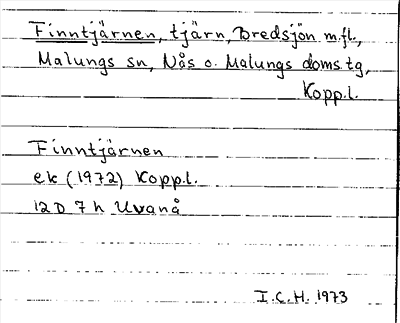 Finntjärnen, tjärn, Bredsjön m.fl.,
Malungs sn, Nås o. Malungs doms.tg,
Kopp.l.
Finntjärnen
ek (1972) Kopp.l.
12D 7h Uvanå
I.C.H. 1973